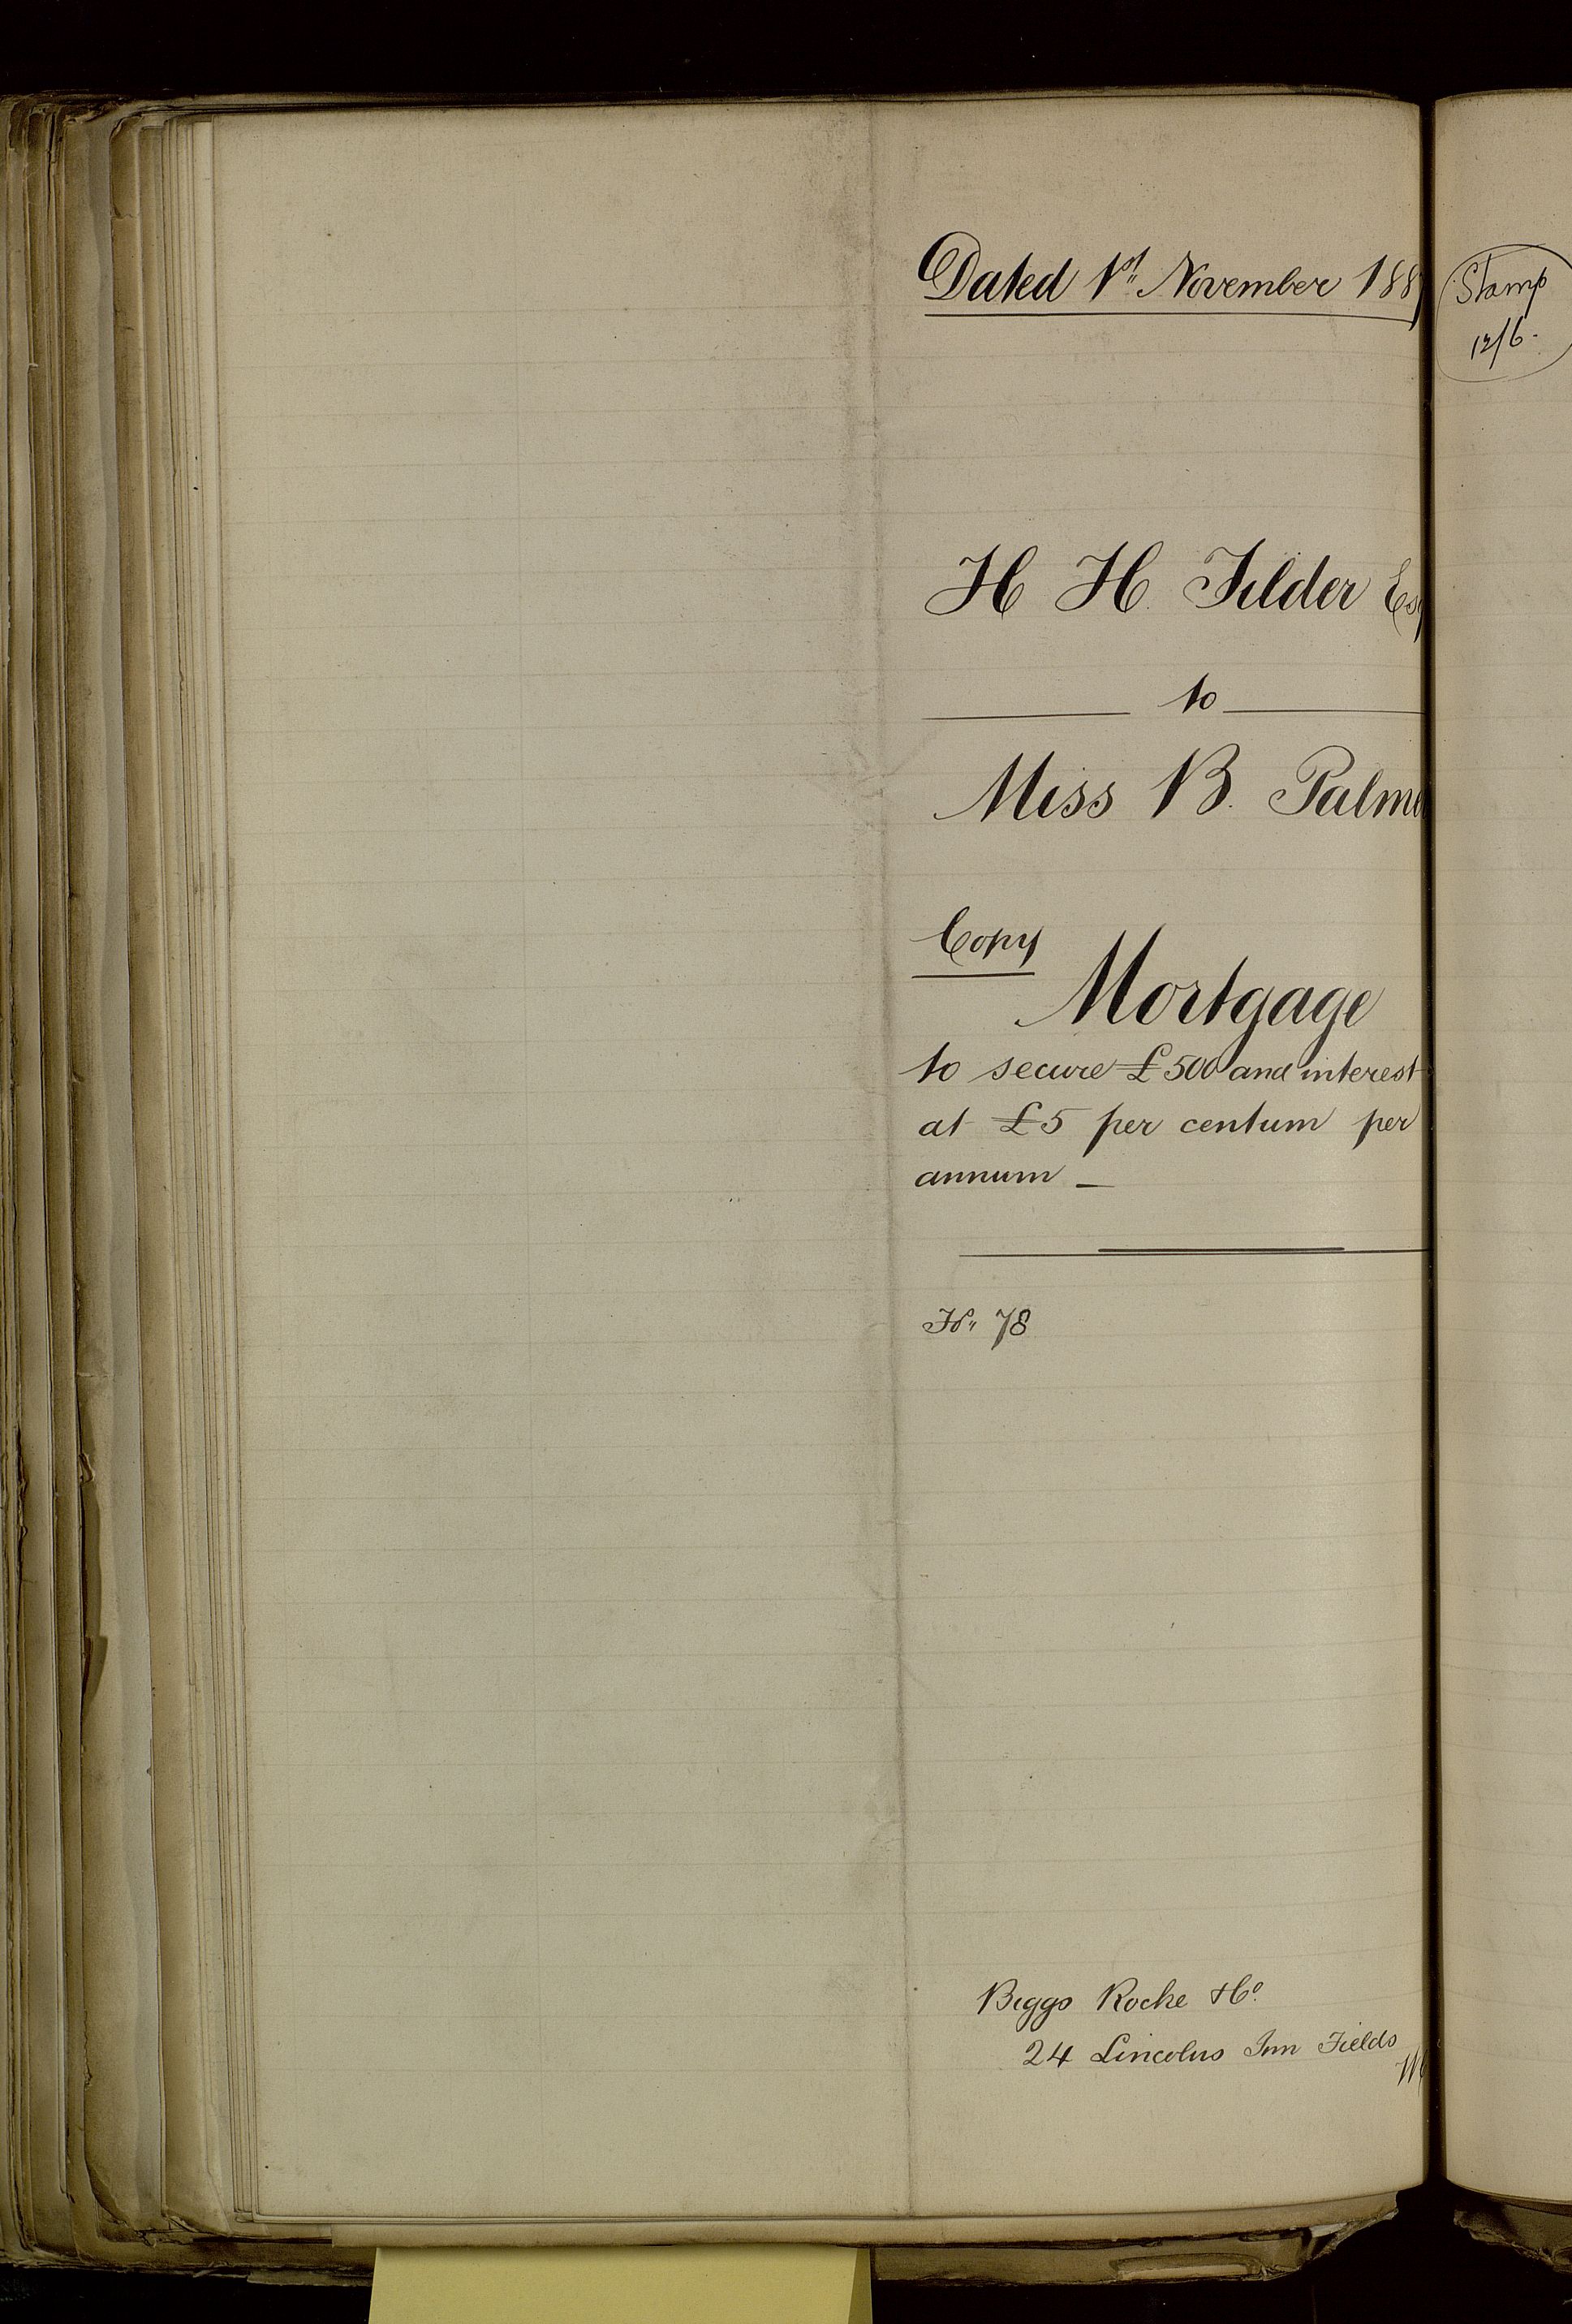 Dated 1st November 188
H H. Filder Esq
to
Miss B. Palme
Copy
Mortgage
to secure £500 and interest
at £5 per centum per
annum _
78
Biggs Roche & Co.
24 Lincolns Inn Fields
Stamp
12/6.